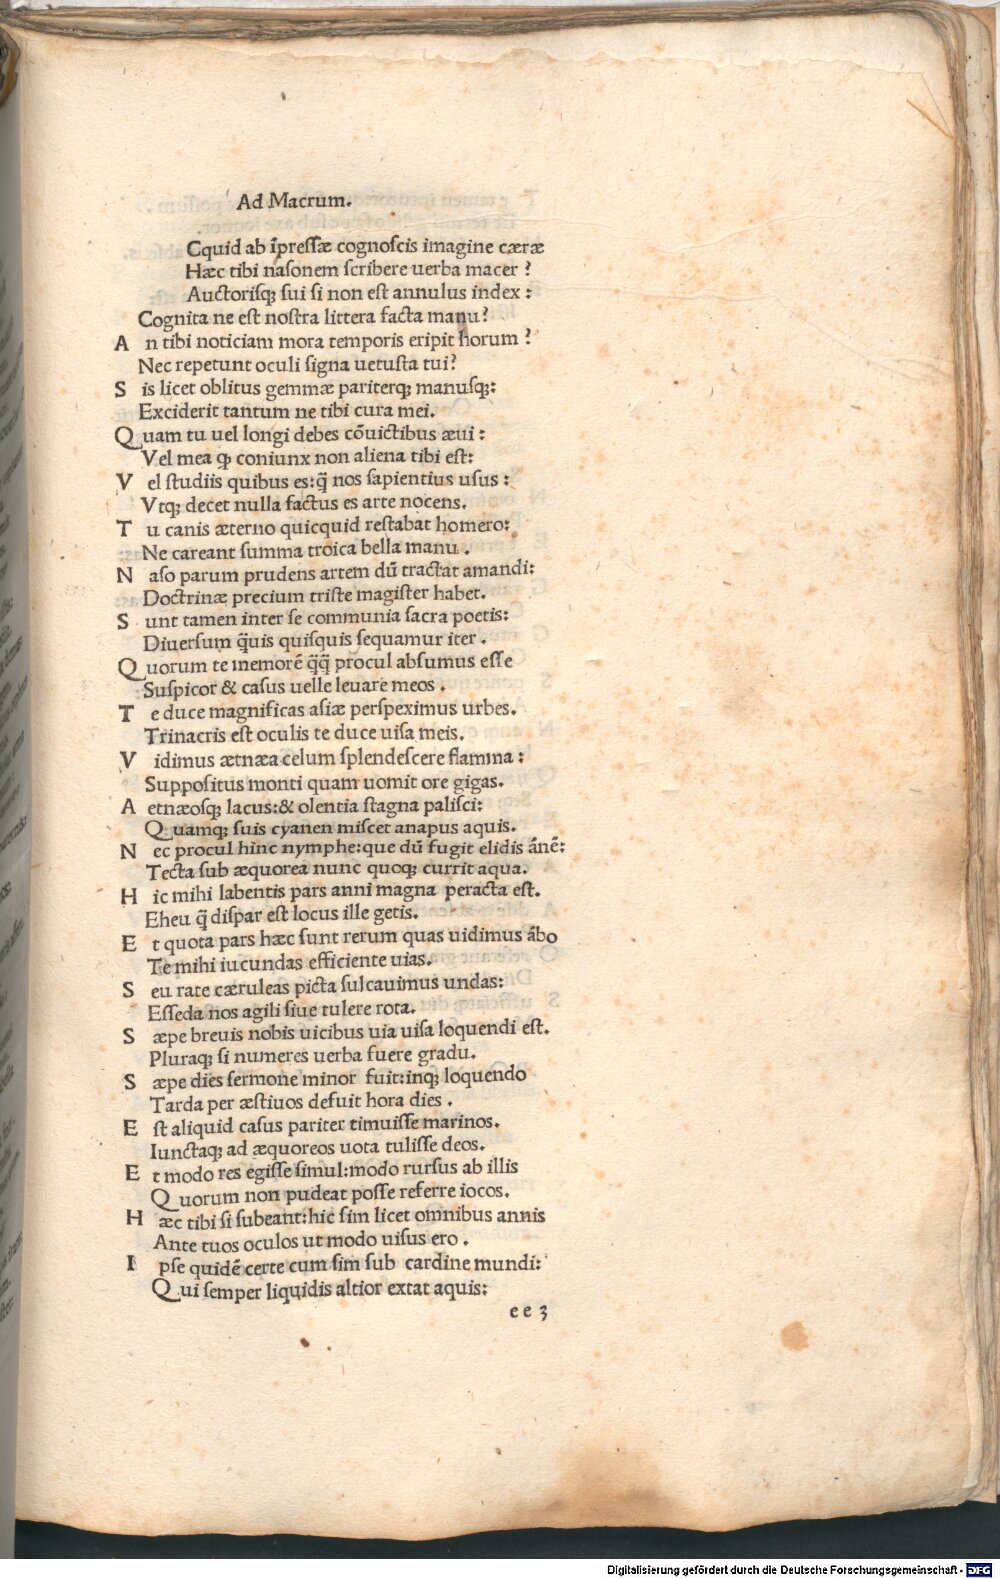 Ad Macrum.
Cquid ab īpreſſæ cognoſcis imagine cæræ
Hæc tibi naſonem ſcribere uerba macer ?
Auctoriſqꝫ ſui ſi non eſt annulus index :
Cognita ne eſt noſtra littera facta manu?
A n tibi noticiam mora temporis eripit horum ?
Nec repetunt oculi ſigna uetuſta tui?
S is licet oblitus gemmæ pariterqꝫ manuſqꝫ:
Exciderit tantum ne tibi cura mei.
Q uam tu uel longi debes cōuictibus æui :
Vel mea ꝙ coniunx non aliena tibi eſt:
V el ſtudiis quibus es:q̄ nos ſapientius uſus :
Vtqꝫ decet nulla factus es arte nocens.
T u canis æterno quicquid reſtabat homero:
Ne careant ſumma troica bella manu .
N aſo parum prudens artem dū tractat amandi:
Doctrinæ precium triſte magiſter habet.
S unt tamen inter ſe communia ſacra poetis:
Diuerſum q̄uis quiſquis ſequamur iter .
Q uorum te memorē q̄q̄ procul abſumus eſſe
Suſpicor & caſus uelle leuare meos .
T e duce magnificas aſiæ perſpeximus urbes.
Trinacris eſt oculis te duce uiſa meis.
V idimus ætnæa celum ſplendeſcere flamma :
Suppoſitus monti quam uomit ore gigas.
A etnæoſqꝫ lacus:& olentia ſtagna paliſci:
Q uamqꝫ ſuis cyanen miſcet anapus aquis.
N ec procul hinc nymphe:que dū fugit elidis ānē:
Tecta ſub æquorea nunc quoqꝫ currit aqua.
H ic mihi labentis pars anni magna peracta eſt.
Eheu q̄ diſpar eſt locus ille getis.
E t quota pars hæc ſunt rerum quas uidimus ābo
Te mihi iucundas efficiente uias.
S eu rate cæruleas picta ſulcauimus undas:
Eſſeda nos agili ſiue tulere rota.
S æpe breuis nobis uicibus uia uiſa loquendi eſt.
Pluraqꝫ ſi numeres uerba fuere gradu.
S æpe dies ſermone minor fuit:inqꝫ loquendo
Tarda per æſtiuos defuit hora dies .
E ſt aliquid caſus pariter timuiſſe marinos.
Iunctaqꝫ ad æquoreos uota tuliſſe deos.
E t modo res egiſſe ſimul:modo rurſus ab illis
Q uorum non pudeat poſſe referre iocos.
H æc tibi ſi ſubeant:hic ſim licet omnibus annis
Ante tuos oculos ut modo uiſus ero .
I pſe quidē certe cum ſim ſub cardine mundi:
Q ui ſemper liquidis altior extat aquis:
e e 3
Digitalisierung gefördert durch die Deutsche Forschungsgemeinschaft - DFG